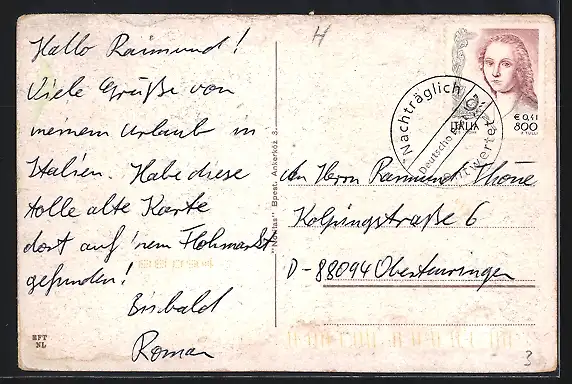 Hallo Raimund!
Viele Grüße von
meinem Urlaub in
Italien. Habe diese
tolle alte Karte
dort auf 'nem Flohmarkt
gefunden!
Bis bald
Roman
EFT
NL
H
"Nobilas" Bpest. Ankerköz 3.
"Nachträglich
entwertet"
Deutsche
ITALIA
€ 0,41
800
An Herrn Raimund Thöne
Kolpingstraße 6
D-88094 Oberteuringen
3